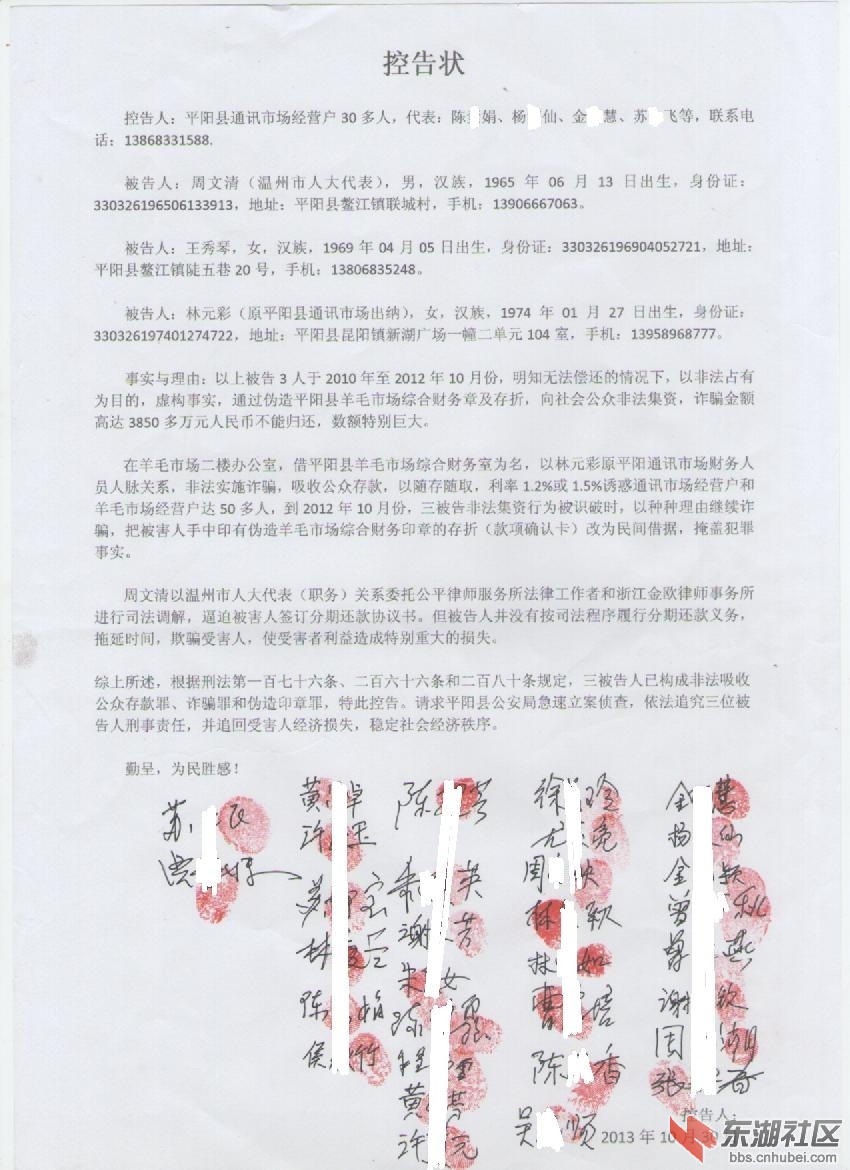 控告状
控告人：平阳县通讯市场经营户 30 多人，代表：陈 娟、杨 仙、金 慧、苏 飞等，联系电
话：13868331588.
被告人：周文清（温州市人大代表），男，汉族，1965 年 06 月 13 日出生，身份证：
330326196506133913，地址：平阳县鳌江镇联城村，手机：13906667063。
被告人：王秀琴，女，汉族，1969 年 04 月 05 日出生，身份证：330326196904052721，地址：
平阳县鳌江镇陡五巷 20 号，手机：13806835248。
被告人：林元彩（原平阳县通讯市场出纳），女，汉族，1974 年 01 月 27 日出生，身份证：
330326197401274722，地址：平阳县昆阳镇新湖广场一幢二单元 104 室，手机：13958968777。
事实与理由：以上被告 3 人于 2010 年至 2012 年 10 月份，明知无法偿还的情况下，以非法占有
为目的，虚构事实，通过伪造平阳县羊毛市场综合财务章及存折，向社会公众非法集资，诈骗金额
高达 3850 多万元人民币不能归还，数额特别巨大。
在羊毛市场二楼办公室，借平阳县羊毛市场综合财务室为名，以林元彩原平阳通讯市场财务人
员人脉关系，非法实施诈骗，吸收公众存款，以随存随取，利率 1.2%或 1.5%诱惑通讯市场经营户和
羊毛市场经营户达 50 多人，到 2012 年 10 月份，三被告非法集资行为被识破时，以种种理由继续诈
骗，把被害人手中印有伪造羊毛市场综合财务印章的存折（款项确认卡）改为民间借据，掩盖犯罪
事实。
周文清以温州市人大代表（职务）关系委托公平律师服务所法律工作者和浙江金欧律师事务所
进行司法调解，逼迫被害人签订分期还款协议书。但被告人并没有按司法程序履行分期还款义务，
拖延时间，欺骗受害人，使受害者利益造成特别重大的损失。
综上所述，根据刑法第一百七十六条、二百六十六条和二百八十条规定，三被告人已构成非法吸收
公众存款罪、诈骗罪和伪造印章罪，特此控告。请求平阳县公安局急速立案侦查，依法追究三位被
告人刑事责任，并追回受害人经济损失，稳定社会经济秩序。
勤呈，为民胜感！
黄 卓 陈 芳 徐 玲 金 慧
苏 许 玉 尤 兔 杨 仙
周 金 颖
英 林 曾 秋
林 谢 芳 林 如 燕
陈 梅 朱 女 曹 培 谢 钦
侯 竹 程 陈 香 周 湖
黄 张 香
许 元 吴 顺
控告人：
2013 年 10 月 30
东湖社区
bbs.cnhubei.com